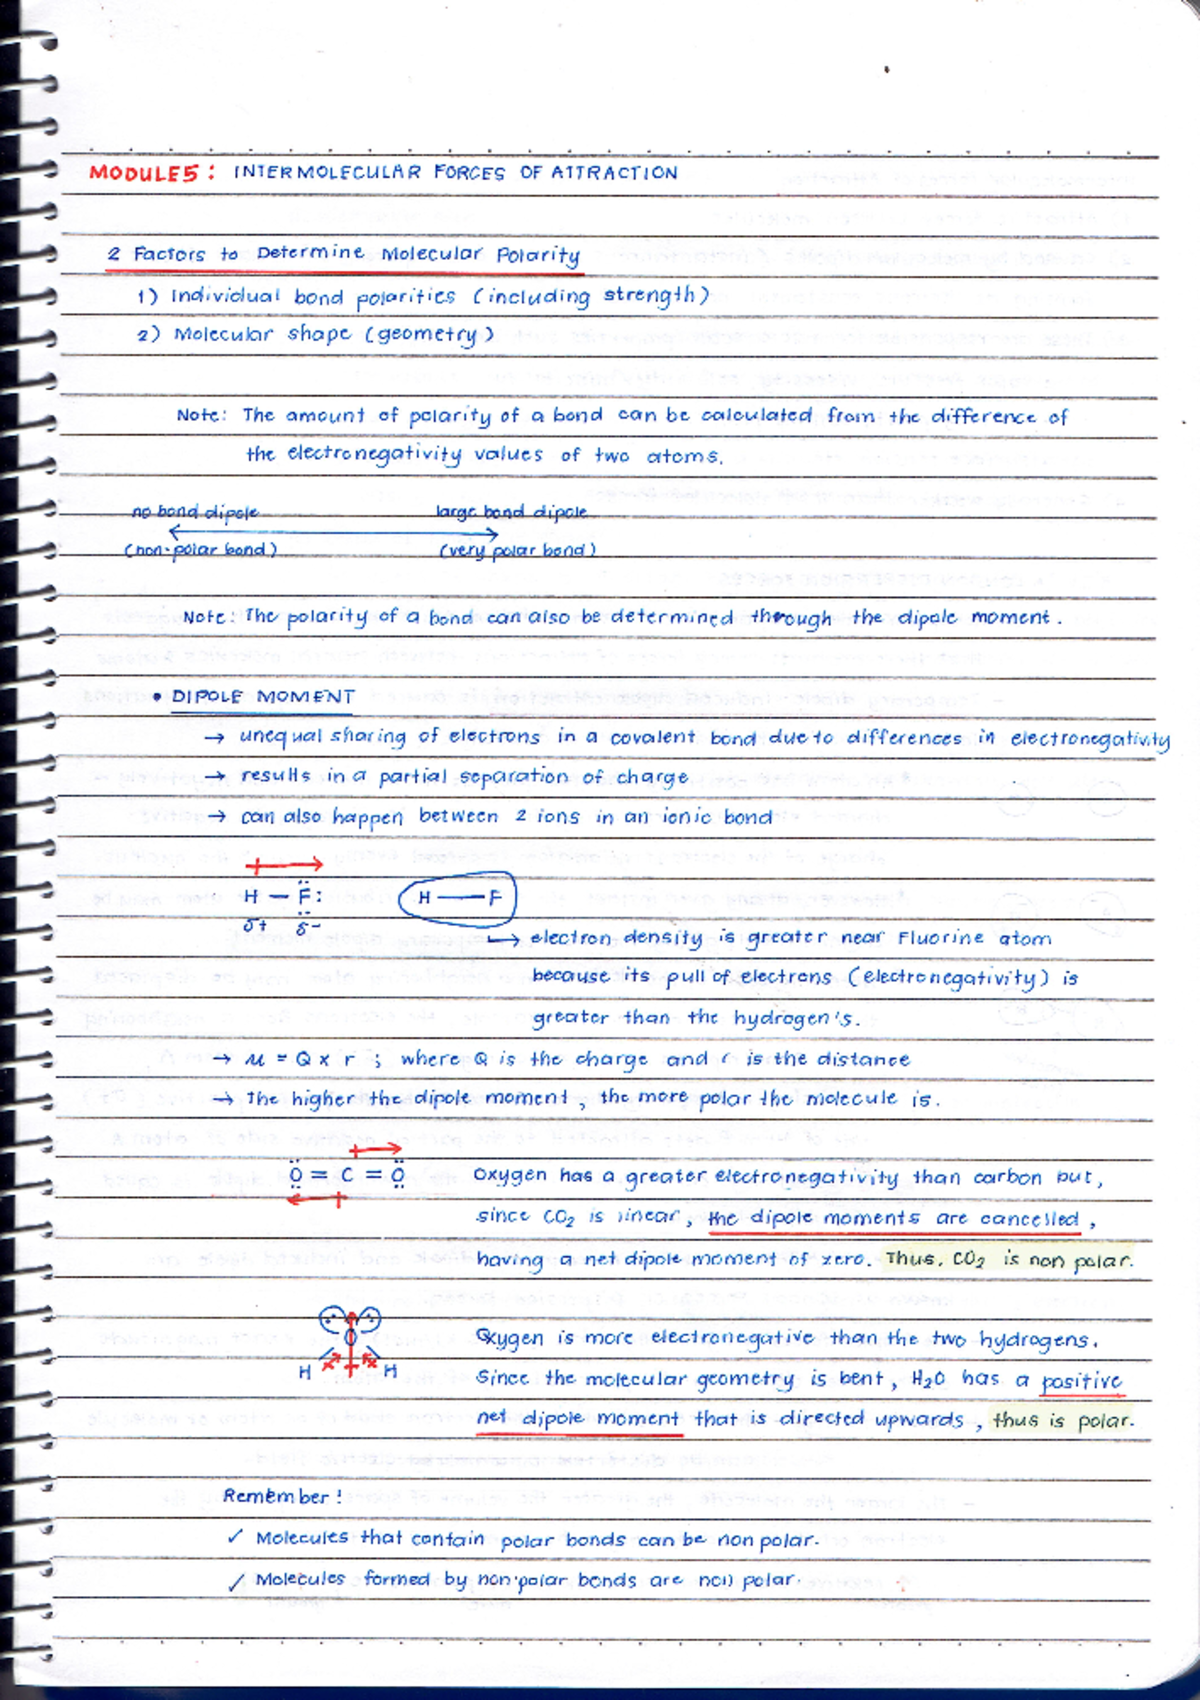 MODULE5: INTERMOLECULAR FORCES OF ATTRACTION
2 Factors to Determine Molecular Polarity
1) Individual bond polarities (including strength)
2) Molecular shape (geometry)
Note: The amount of polarity of a bond can be calculated from the difference of
the electronegativity values of two atoms.
no bond dipole large bond dipole
(non-polar bond) (very polar bond)
Note: The polarity of a bond can also be determined through the dipole moment.
• DIPOLE MOMENT
→ unequal sharing of electrons in a covalent bond due to differences in electronegativity
→ results in a partial separation of charge
→ can also happen between 2 ions in an ionic bond
H — F: H — F
δ+ δ-
→ electron density is greater near Fluorine atom
because its pull of electrons (electronegativity) is
greater than the hydrogen's.
→ μ = Q x r ; where Q is the charge and r is the distance
→ The higher the dipole moment, the more polar the molecule is.
O = C = O Oxygen has a greater electronegativity than carbon but,
since CO₂ is linear, the dipole moments are cancelled,
having a net dipole moment of zero. Thus, CO₂ is non polar.
O Oxygen is more electronegative than the two hydrogens.
H H Since the molecular geometry is bent, H₂O has a positive
net dipole moment that is directed upwards, thus is polar.
Remember!
✓ Molecules that contain polar bonds can be non polar.
✓ Molecules formed by non-polar bonds are non polar.